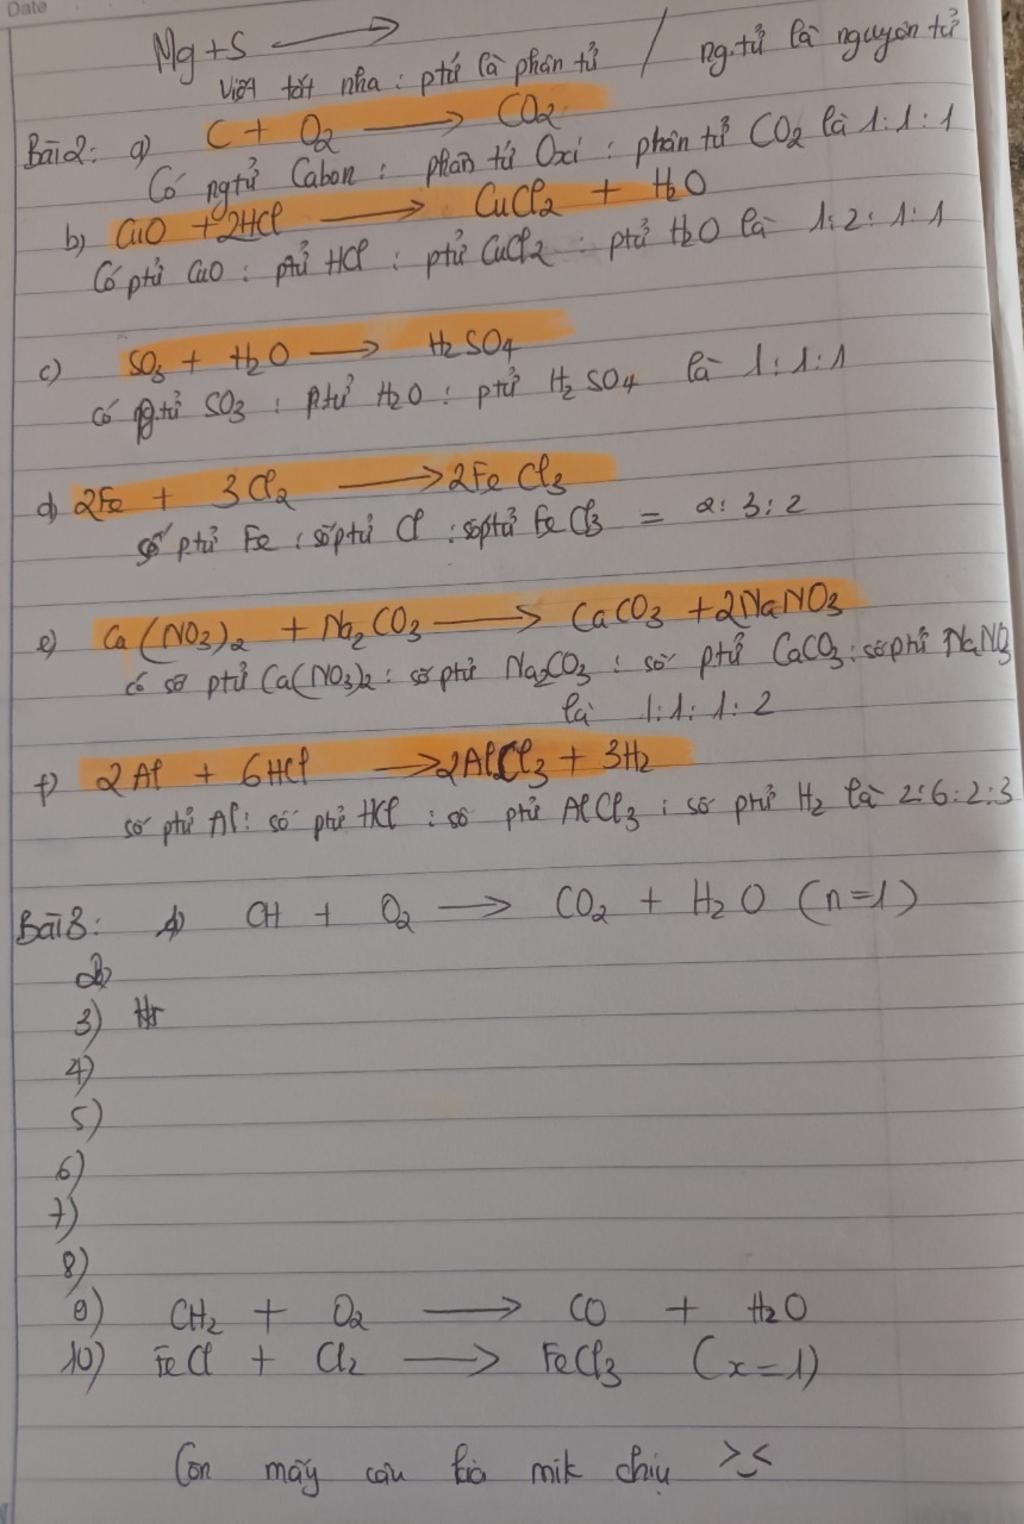 Date
Mg + S ⟶
Viết tắt nha : ptử là phân tử / ng.tử là nguyên tử
Bài 2: a) C + O₂ ⟶ CO₂
Có ngtử Cabon : phân tử Oxi : phân tử CO₂ là 1:1:1
b) CuO + 2HCl ⟶ CuCl₂ + H₂O
Có ptử CuO : ptử HCl : ptử CuCl₂ : ptử H₂O là 1:2:1:1
c) SO₃ + H₂O ⟶ H₂SO₄
Có p.tử SO₃ : p.tử H₂O : ptử H₂SO₄ là 1:1:1
d) 2Fe + 3Cl₂ ⟶ 2FeCl₃
số ptử Fe : số ptử Cl : số ptử FeCl₃ = 2:3:2
e) Ca(NO₃)₂ + Na₂CO₃ ⟶ CaCO₃ + 2NaNO₃
có số ptử Ca(NO₃)₂ : số ptử Na₂CO₃ : số ptử CaCO₃ : số ptử NaNO₃
là 1:1:1:2
f) 2Al + 6HCl ⟶ 2AlCl₃ + 3H₂
số ptử Al : số ptử HCl : số ptử AlCl₃ : số ptử H₂ là 2:6:2:3
Bài 3: CH + O₂ ⟶ CO₂ + H₂O (n=1)
2)
3)
4)
5)
6)
7)
8)
9) CH₂ + O₂ ⟶ CO + H₂O
10) FeCl + Cl₂ ⟶ FeCl₃ (x=1)
Còn mấy câu kia mik chịu >.<